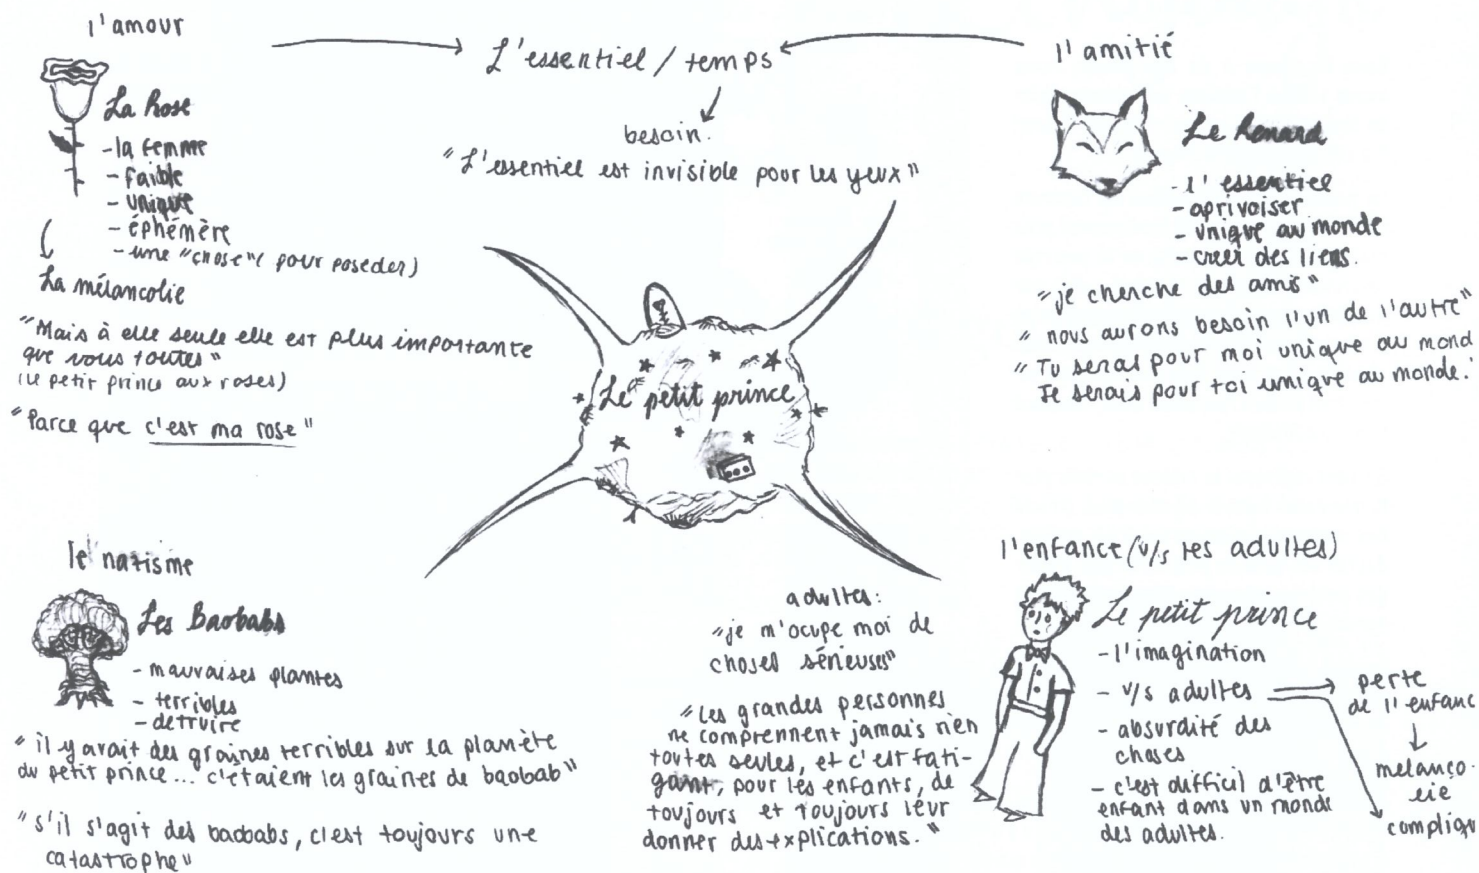 l'amour
La Rose
- la femme
- faible
- unique
- éphémère
- une "chose" ( pour poseder)
La mélancolie
"Mais à elle seule elle est plus importante
que vous toutes"
(le petit prince aux roses)
"Parce que c'est ma rose"
L'essentiel / temps
besoin.
"L'essentiel est invisible pour les yeux"
l'amitié
Le Renard
- l'essentiel
- aprivoiser
- unique au monde
- creer des liens.
"je cherche des amis"
"nous aurons besoin l'un de l'autre"
"Tu seras pour moi unique au mond
Je serais pour toi unique au monde.
Le petit prince
le nazisme
Les Baobabs
- mauvaises plantes
- terribles
- detruire
"il y avait des graines terribles sur la planète
du petit prince... c'étaient les graines de baobab"
"s'il s'agit des baobabs, c'est toujours une
catastrophe"
adultes:
"je m'ocupe moi de
choses sérieuses"
"Les grandes personnes
ne comprennent jamais rien
toutes seules, et c'est fati-
gant, pour les enfants, de
toujours et toujours leur
donner des explications."
l'enfance (v/s les adultes)
Le petit prince
- l'imagination
- v/s adultes
- absurdité des
choses
- c'est difficil d'être
enfant dans un monde
des adultes.
perte
de l'enfanc
melanco-
lie
compliqu